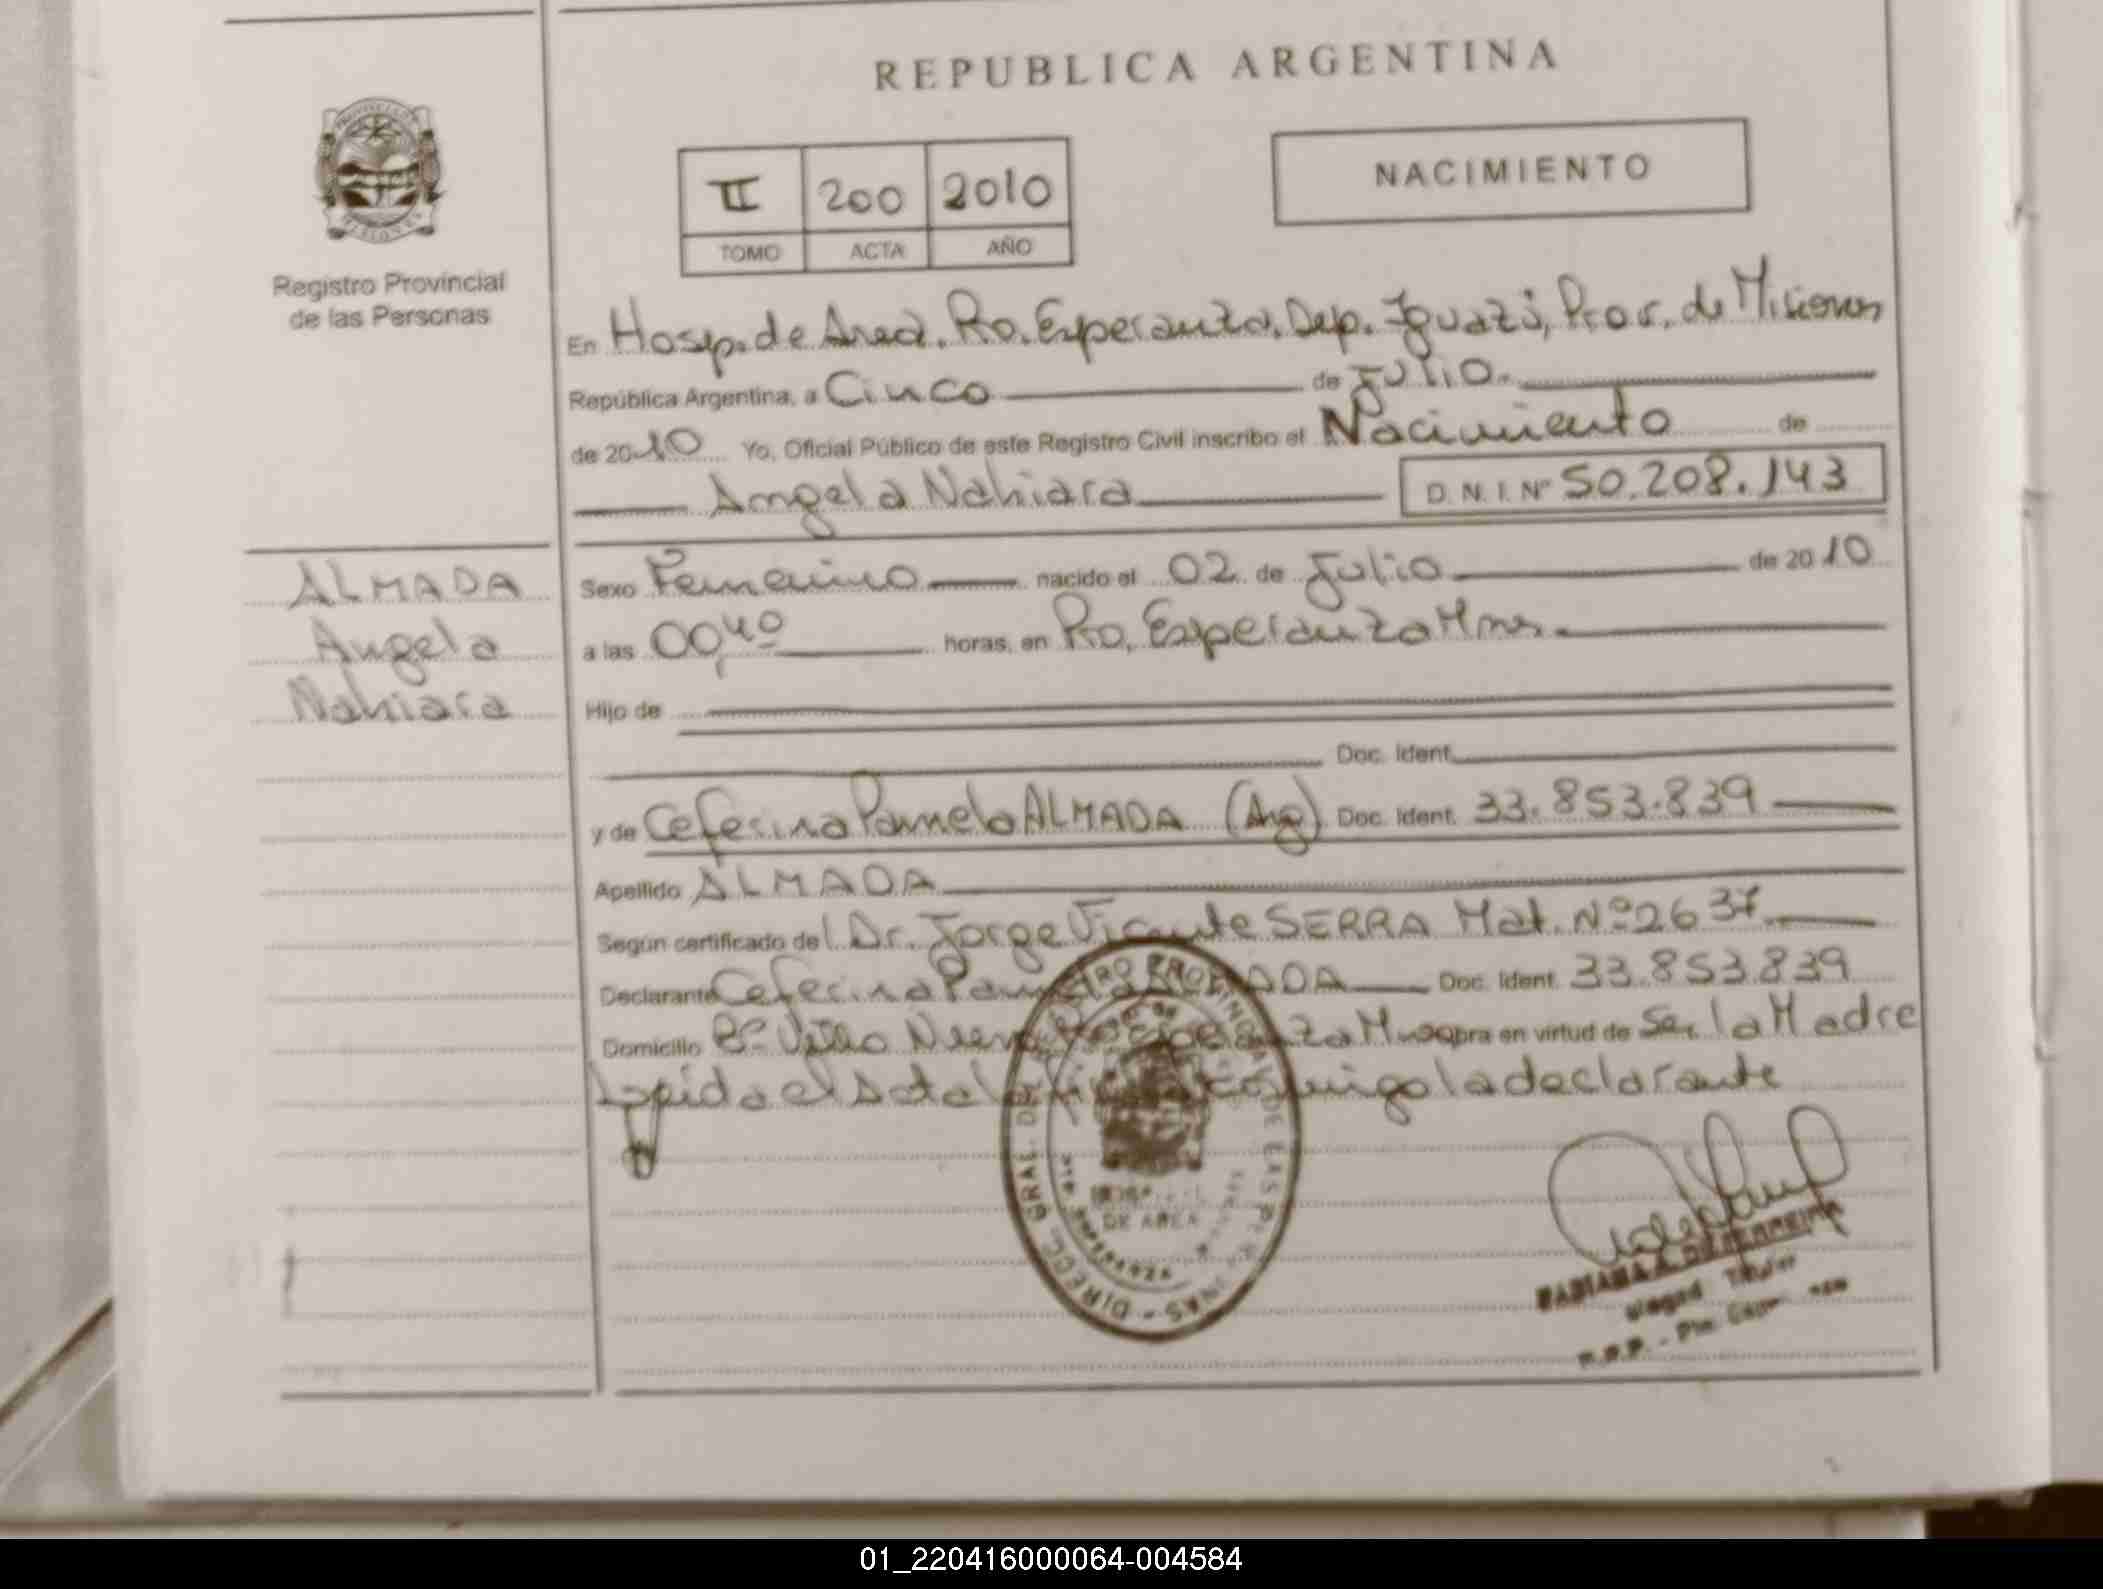 REPUBLICA ARGENTINA
NACIMIENTO
II 200 2010
TOMO ACTA AÑO
Registro Provincial
de las Personas
En Hosp. de Area. Pto. Esperanza. Dep. Iguazú, Prov. de Misiones
República Argentina, a Cinco de Julio.
de 2010 Yo, Oficial Público de este Registro Civil inscribo el Nacimiento de
Angela Nahiara D.N.I. Nº 50.208.143
ALMADA
Angela
Nahiara
Sexo Femenino nacido el 02 de Julio de 2010
a las 00,40 horas, en Pto. Esperanza Mnes.
Hijo de
Doc. Ident.
y de Ceferina Pamela ALMADA (Arg) Doc. Ident. 33.853.839
Apellido ALMADA
Según certificado del Dr. Jorge Vicente SERRA Mat. Nº 2637
Declarante Ceferina Doc. Ident. 33.853.839
Domicilio Bº Villa obra en virtud de Ser la Madre
el acta la declarante
DIRECC. GRAL. DE
DE AREA
FABIANA A. DE FERREIRA
Titular
01_220416000064-004584